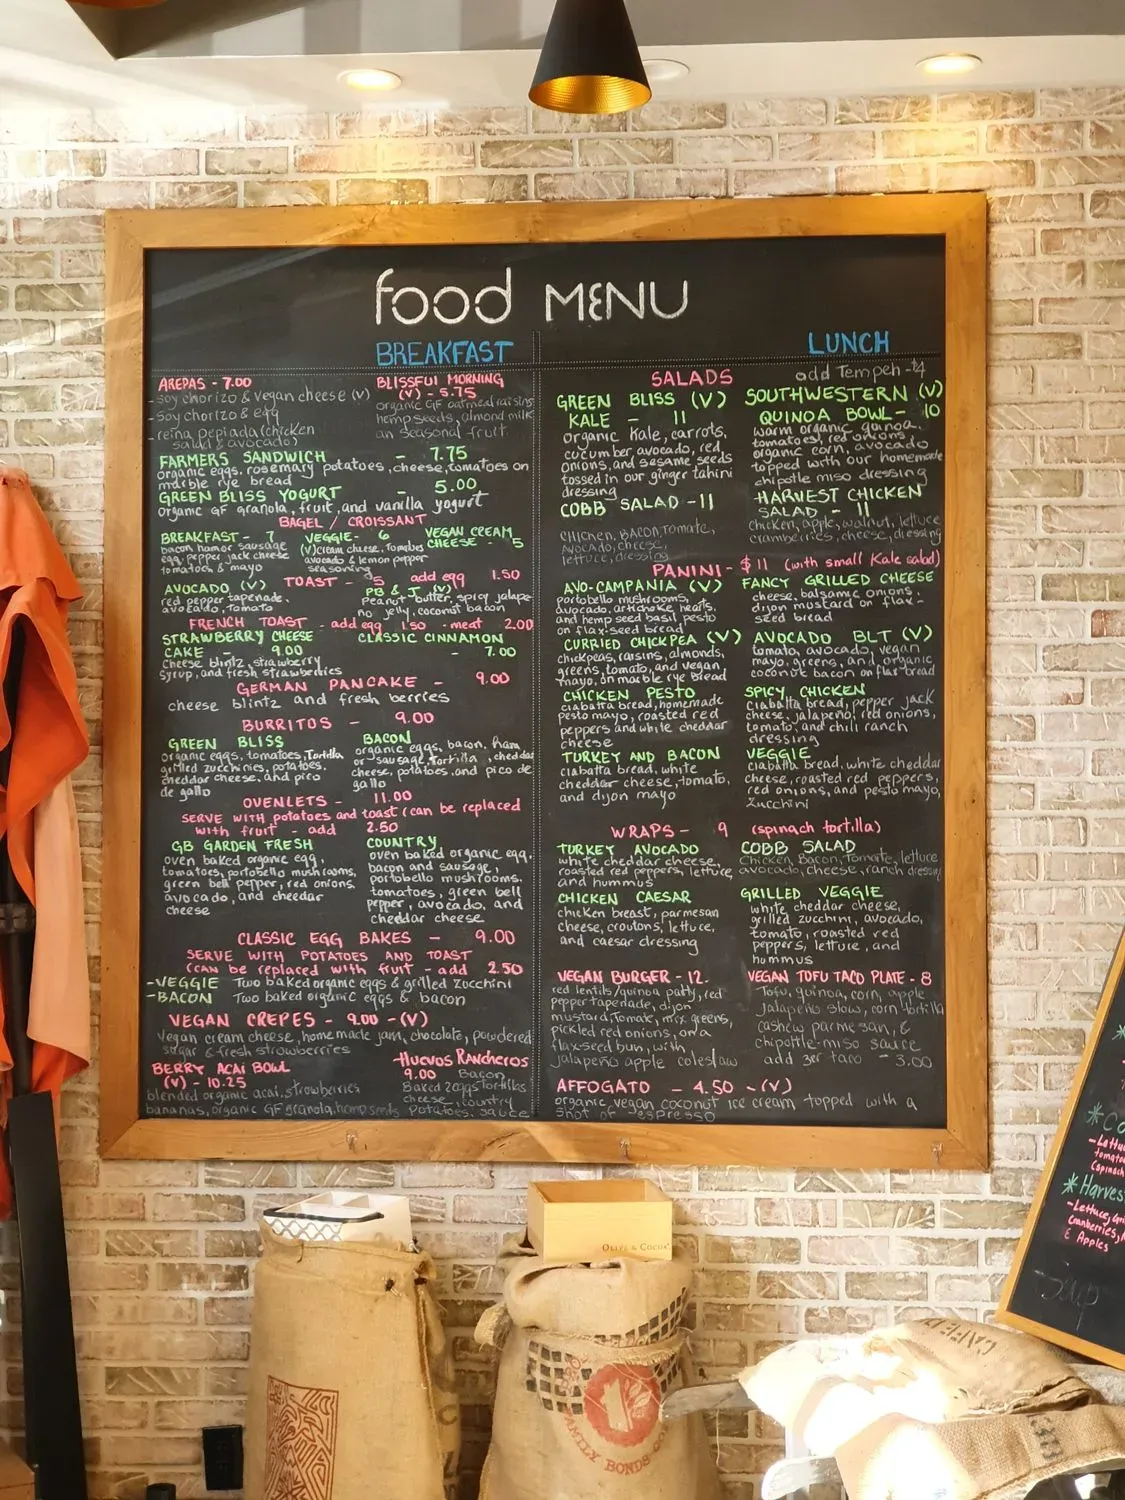 food MENU
BREAKFAST
AREPAS - 7.00
- soy chorizo & vegan cheese (v)
- soy chorizo & egg
- reina pepiada (chicken
salad & avocado)
BLISSFUL MORNING
(V) - 5.75
organic GF oatmeal raisins
hemp seeds, almond milk
an seasonal fruit
FARMERS SANDWICH - 7.75
organic eggs, rosemary potatoes, cheese, tomatoes on
marble rye bread
GREEN BLISS YOGURT - 5.00
organic GF granola, fruit, and vanilla yogurt
BAGEL / CROISSANT
BREAKFAST - 7
bacon, ham or sausage
egg, pepper jack cheese
tomatoes & mayo
VEGGIE - 6
(V) cream cheese, tomatoes
avocado & lemon pepper
seasoning
VEGAN CREAM
CHEESE - 5
TOAST - 5 add egg 1.50
AVOCADO (V)
red pepper tapenade,
avocado, tomato
PB & J (V)
Peanut butter, spicy jalape-
no jelly, coconut bacon
FRENCH TOAST - add egg 1.50 - meat 2.00
STRAWBERRY CHEESE
CAKE - 9.00
cheese blintz, strawberry
syrup, and fresh strawberries
CLASSIC CINNAMON
- 7.00
GERMAN PANCAKE - 9.00
cheese blintz and fresh berries
BURRITOS - 9.00
GREEN BLISS
organic eggs, tomatoes, Tortilla
grilled zucchinies, potatoes,
cheddar cheese, and pico
de gallo
BACON
organic eggs, bacon, ham
or sausage, Tortilla, cheddar
cheese, potatoes, and pico de
gallo
OVENLETS - 11.00
SERVE WITH potatoes and toast (can be replaced
with fruit - add 2.50
GB GARDEN FRESH
oven baked organic egg,
tomatoes, portobello mushrooms,
green bell pepper, red onions,
avocado, and cheddar
cheese
COUNTRY
oven baked organic egg,
bacon and sausage,
portobello mushrooms,
tomatoes, green bell
pepper, avocado, and
cheddar cheese
CLASSIC EGG BAKES - 9.00
SERVE WITH POTATOES AND TOAST
(can be replaced with fruit - add 2.50
- VEGGIE Two baked organic eggs & grilled zucchini
- BACON Two baked organic eggs & bacon
VEGAN CREPES - 9.00 - (V)
Vegan cream cheese, homemade jam, chocolate, powdered
sugar & fresh strawberries
BERRY ACAI BOWL
(V) - 10.25
blended organic acai, strawberries
bananas, organic GF granola, hemp seeds
- Huevos Rancheros
9.00 Bacon,
Baked 2 eggs Tortillas
cheese, country
Potatoes, sauce
LUNCH
add Tempeh - $4
SALADS
GREEN BLISS (V)
KALE - 11
organic kale, carrots,
cucumber, avocado, red
onions, and sesame seeds
tossed in our ginger tahini
dressing
COBB SALAD - 11
CHICKEN, BACON, Tomate,
Avocado, cheese,
lettuce, dressing
SOUTHWESTERN (V)
QUINOA BOWL - 10
warm organic quinoa,
tomatoes, red onions,
organic corn, avocado
topped with our homemade
chipotle miso dressing
HARVEST CHICKEN
SALAD - 11
chicken, apple, walnut, lettuce
cramberries, cheese, dressing
PANINI - $11 (with small Kale salad)
AVO-CAMPANIA (V)
portobello mushrooms,
avocado, artichoke hearts,
and hemp seed basil pesto
on flax-seed bread
FANCY GRILLED CHEESE
cheese, balsamic onions,
dijon mustard on flax-
seed bread
CURRIED CHICKPEA (V)
chickpeas, raisins, almonds,
greens, tomato, and vegan
mayo, on marble rye bread
AVOCADO BLT (V)
tomato, avocado, vegan
mayo, greens, and organic
coconut bacon on flax bread
CHICKEN PESTO
ciabatta bread, homemade
pesto mayo, roasted red
peppers and white cheddar
cheese
SPICY CHICKEN
ciabatta bread, pepper jack
cheese, jalapeño, red onions,
tomato, and chili ranch
dressing
TURKEY AND BACON
ciabatta bread, white
cheddar cheese, tomato,
and dijon mayo
VEGGIE
ciabatta bread, white cheddar
cheese, roasted red peppers,
red onions, and pesto mayo,
Zucchini
WRAPS - 9 (spinach tortilla)
TURKEY AVOCADO
white cheddar cheese,
roasted red peppers, lettuce,
and hummus
COBB SALAD
Chicken, Bacon, Tomate, lettuce
avocado, cheese, ranch dressing
CHICKEN CAESAR
chicken breast, parmesan
cheese, croutons, lettuce,
and caesar dressing
GRILLED VEGGIE
white cheddar cheese,
grilled zucchini, avocado,
tomato, roasted red
peppers, lettuce, and
hummus
VEGAN BURGER - 12.
red lentils/quinoa patty, red
pepper tapenade, dijon
mustard, tomato, mix greens,
pickled red onions, on a
flaxseed bun, with
jalapeño apple coleslaw
VEGAN TOFU TACO PLATE - 8
Tofu, quinoa, corn, apple
jalapeño slaw, corn tortilla
cashew parmesan, &
chipotle-miso sauce
add 3er taco - 3.00
AFFOGATO - 4.50 - (V)
organic, vegan coconut ice cream topped with a
shot of espresso
OLIVE & COCOA
FAMILY BONDS
- Lettuce
tomatoe
(spinach
* Harves
- Lettuce, Gri
Cranberries,
& Apples
Soup